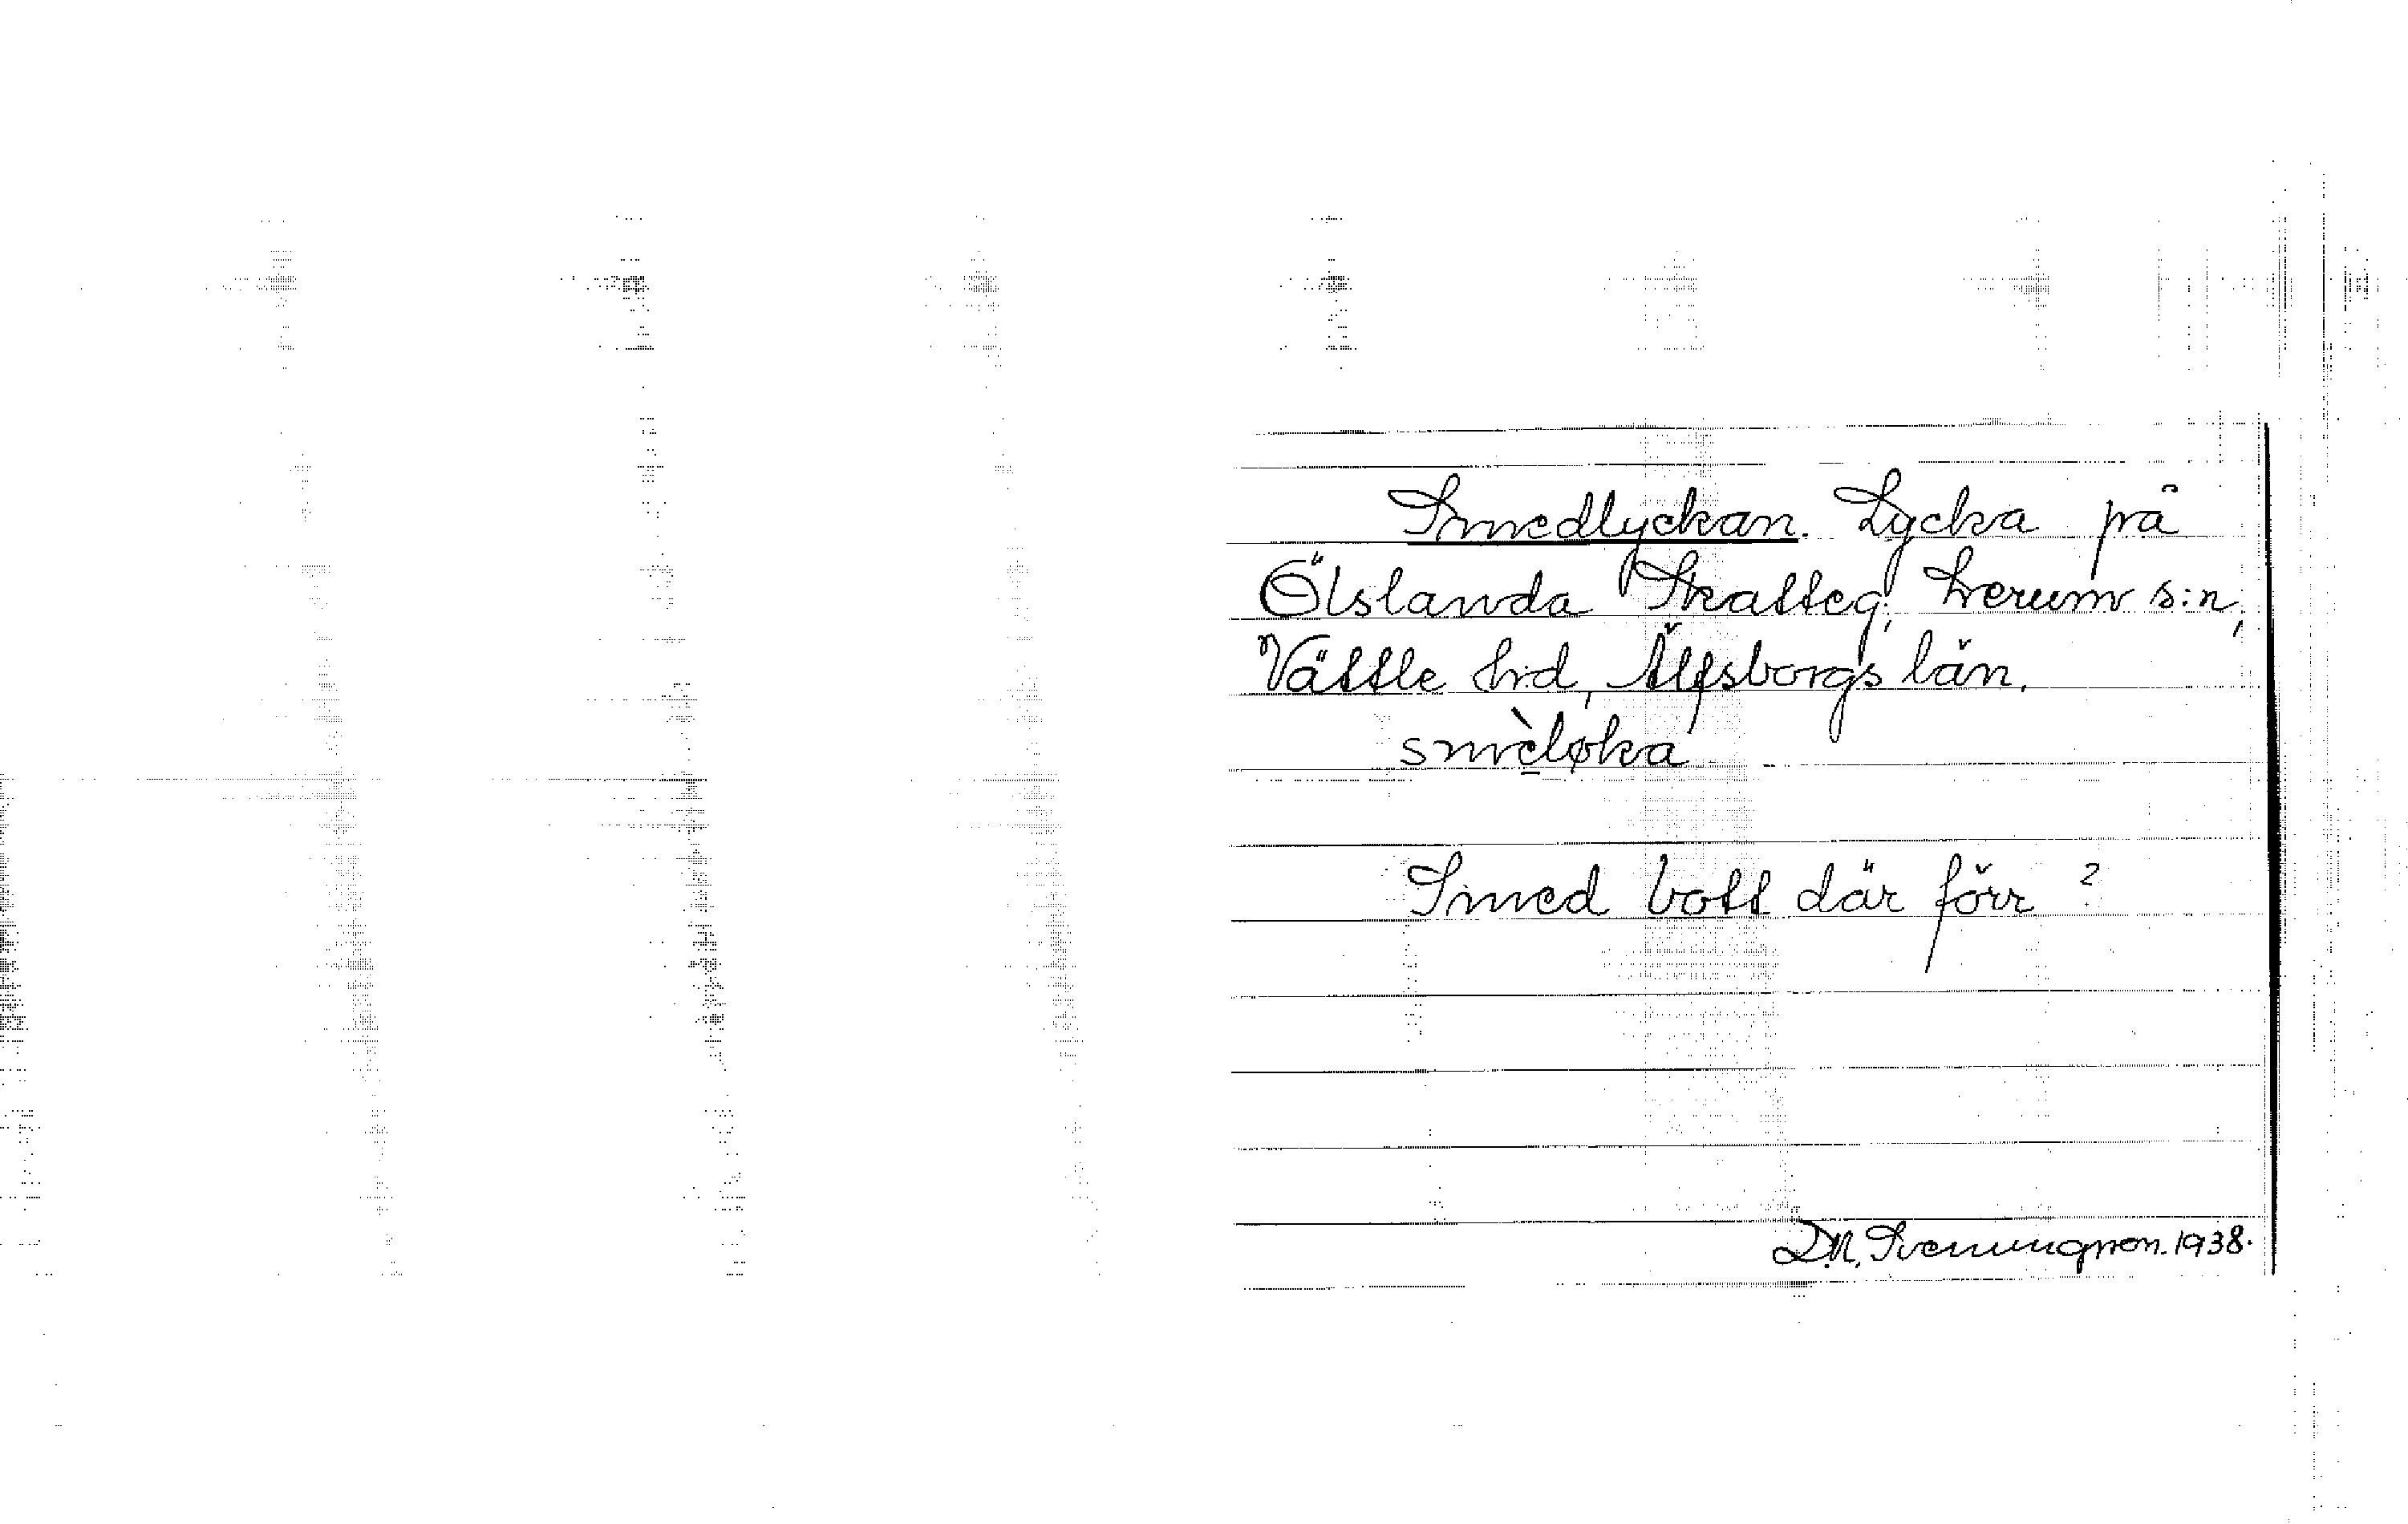 Smedlyckan. Lycka på
Ölslanda Skatteg., Lerum s:n,
Vättle hd, Älfsborgs län.
smèløka
Smed bott där förr?
D.N. Svenungsson. 1938.